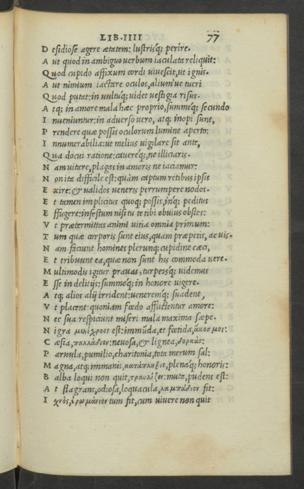 LIB. IIII 77
D esidiose agere ætatem: lustrisq; perire.
A ut quod in ambiguo uerbum iaculata reliquit:
Quod cupido affixum cordi uiuescit, ut ignis.
A ut nimium iactare oculos, aliumúe tueri
Quod putet: in uultúq; uidet uestigia risus.
A tq; in amore mala hæc proprio, summéq; secundo
I nueniuntur: in aduerso uero, atq; inopi sunt,
P rendere quæ possis oculorum lumine aperto:
I nnumerabilia: ut melius uigilare sit ante,
Qua docui ratione: cauereq; ne illiciaris.
N am uitare, plagas in amoris ne iaciamur:
N on ita difficile est: quàm captum retibus ipsis
E xire: & ualidos ueneris perrumpere nodos.
E t tamen implicitus quoq; possis, inq; peditus
E ffugere: infestum nisi tu te tibi obuius obstes:
V t prætermittas animi uitia omnia primum:
T um quæ corporis sunt eius, quam præpetis, ac uis.
N am faciunt homines plerunq; cupidine cæci,
E t tribuunt ea, quæ non sunt his commoda uere.
M ultimodis igitur prauas, turpesq; uidemus
E sse in delitijs: summoq; in honore uigere.
A tq; alios alij irrident: ueneremq; suadent,
V t placent: quoniam fœdo afflictentur amore:
N ec sua respiciunt miseri mala maxima sæpe.
N igra μελίχροος est: immūda, et fœtida, ἄκοσμος:
C æsia, παλλάδιον: neruosa, & lignea, δορκὰς:
P arnula, pumilio, charitonia, tota merum sal:
M agna, atq; immanis, κατάπληξις, plenaq; honoris:
B alba loqui non quit, τραυλίζει: muta, pudens est:
A t flagrans, odiosa, loquacula, λαμπάδιον fit:
I χνὸς, ἐρωμένιον tum fit, cum uiuere non quit